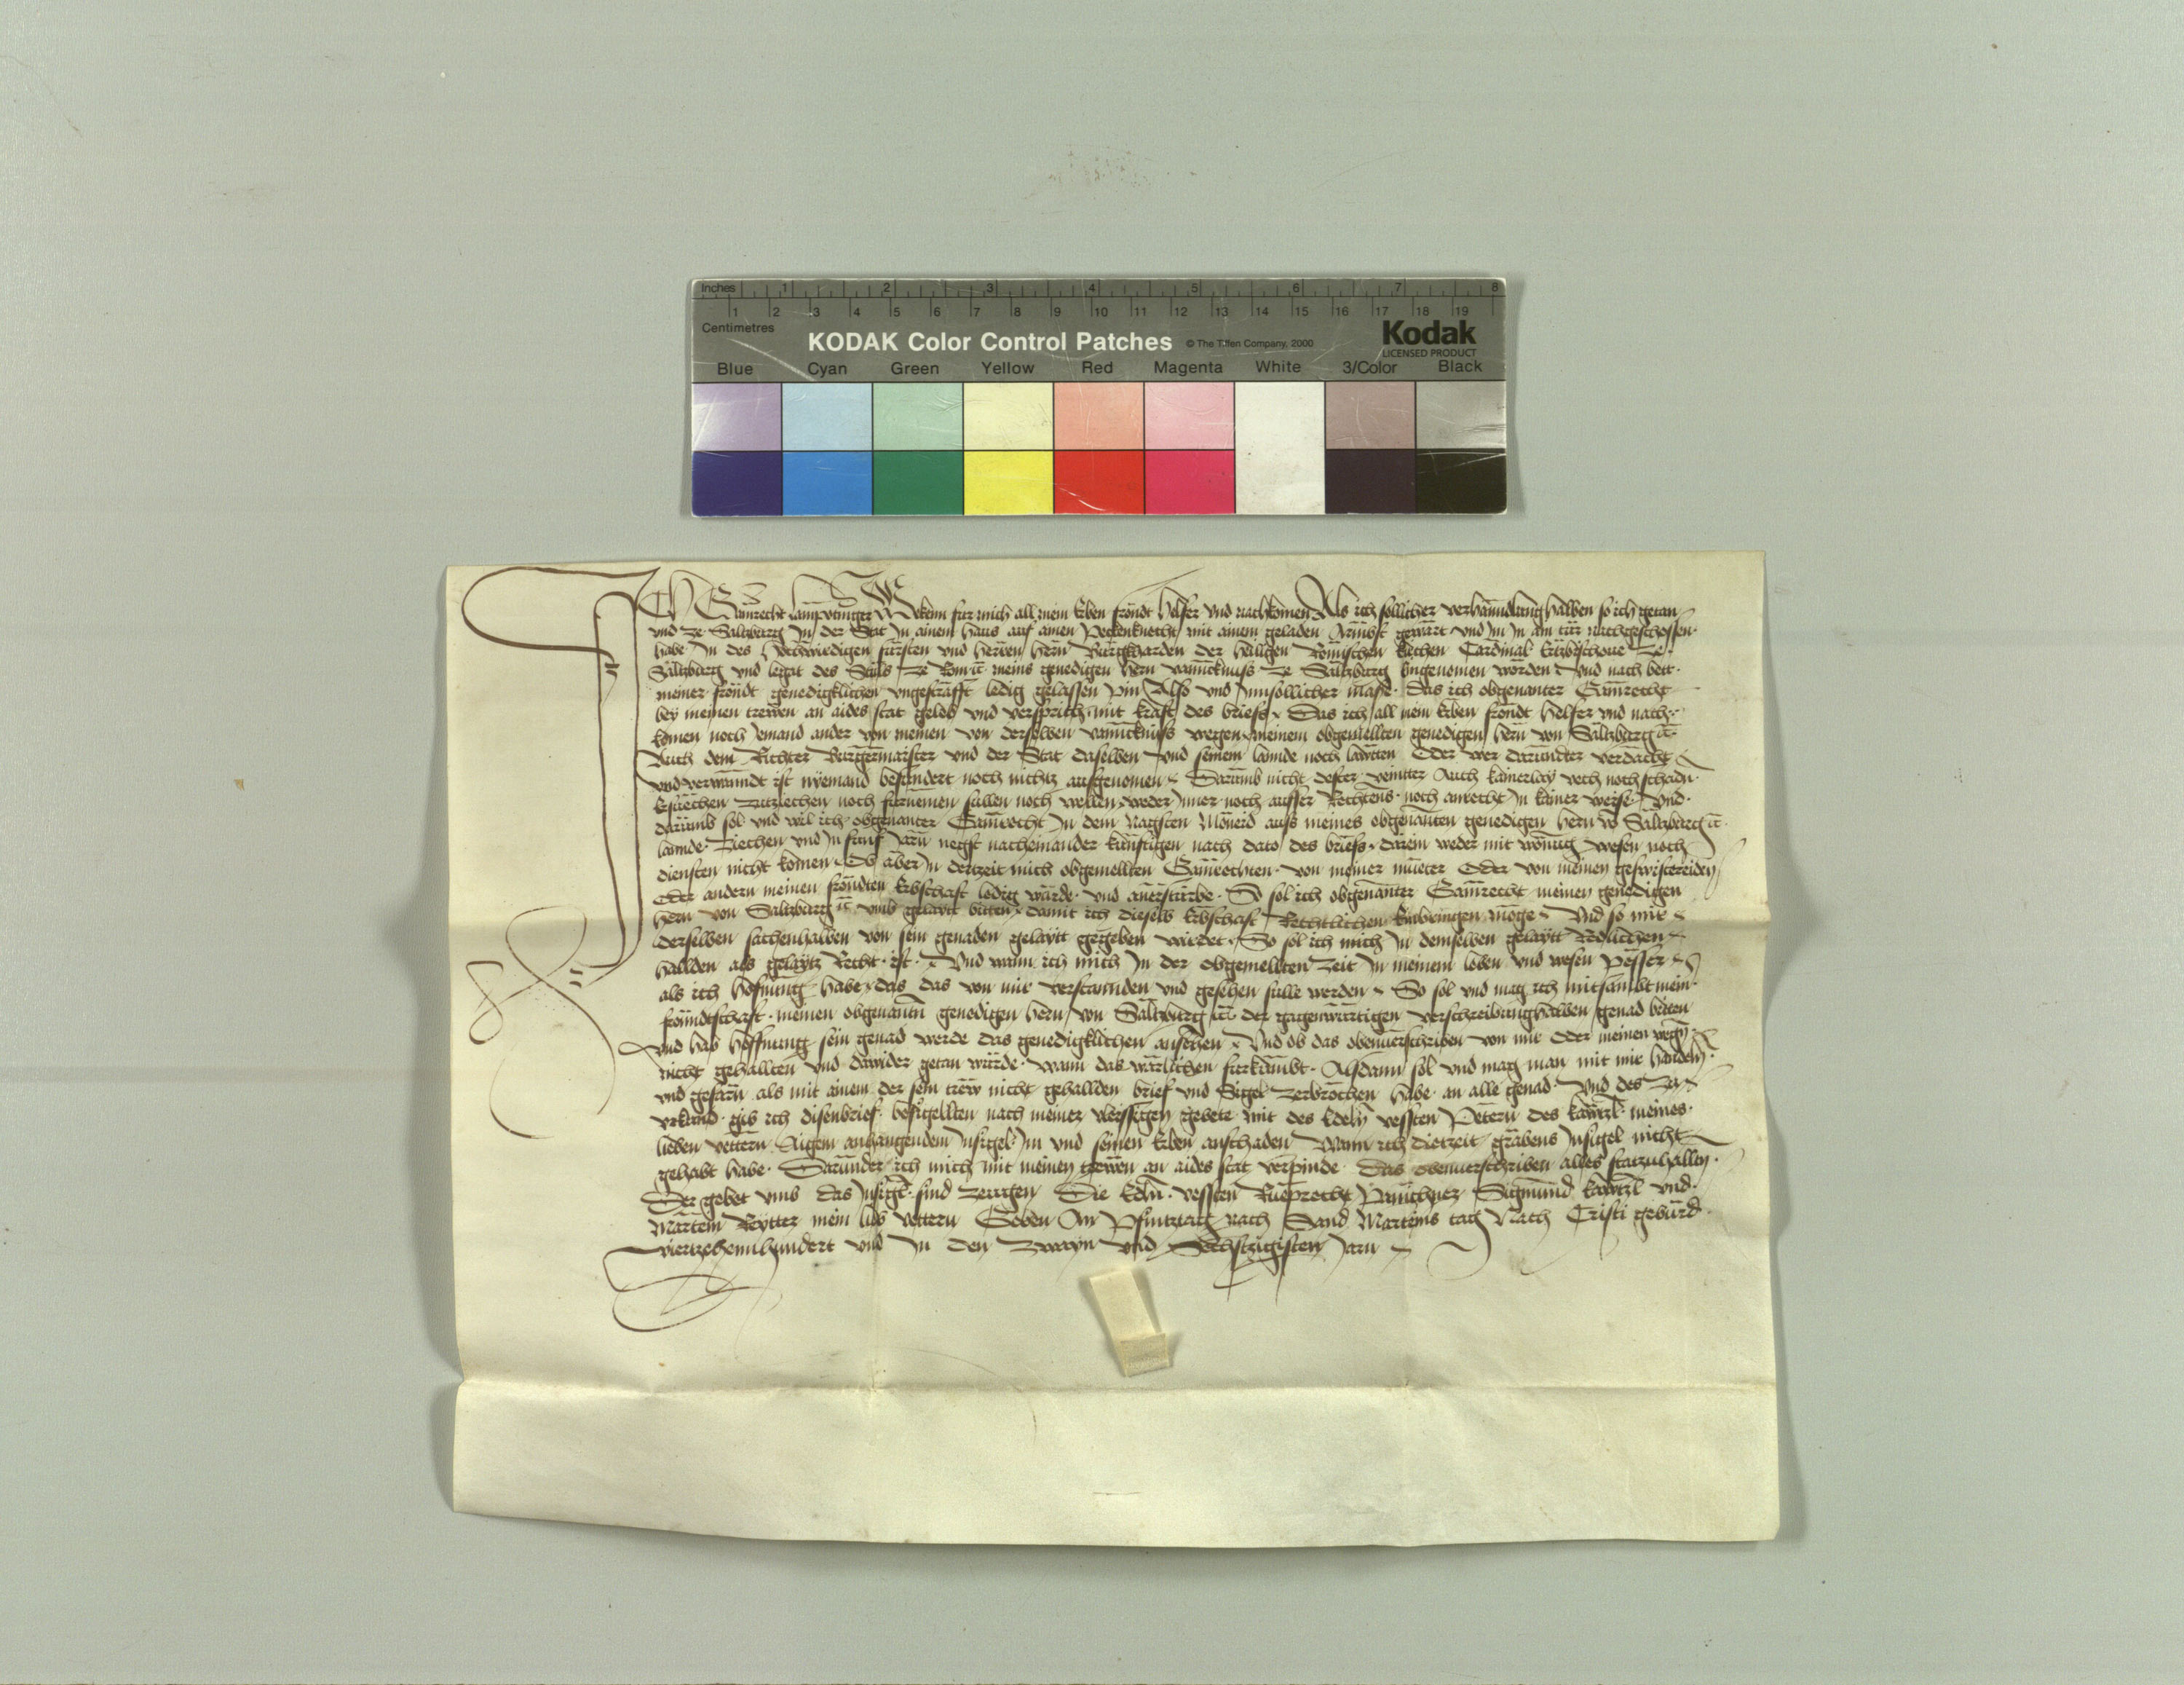 Inches 1 2 3 4 5 6 7 8
1 2 3 4 5 6 7 8 9 10 11 12 13 14 15 16 17 18 19
Centimetres
KODAK Color Control Patches © The Tiffen Company, 2000 Kodak
LICENSED PRODUCT
Blue Cyan Green Yellow Red Magenta White 3/Color Black
ICH Gamrecht Bekenn fur mich all mein Erben frŏndt helfer vnd nachkomen Als ich sollicher verhanndlung halben so ich getan
vnd ze Saltzburg In der Stat In ainem haus auf ainen Pekenknecht mit ainem geladen Armbst gewart vnd Im In am tür nachgeschossen
habe In des hochwirdigen fürsten vnd herren hern Burgkharden der heiligen Römischen kirchen Cardinal Ertzbischoue ze
Saltzburg vnd legat des Stuls ze Rom etc meins genedigen hern vannckhnuss ze Saltzburg bin genomen worden vnd nach bett
meiner fröndt genedigklichen vngestrafft ledig gelassen pin Also vnd Inn sollicher mass das ich obgenanter Gamrecht
bey meinen trewen an aides stat gelob vnd versprich mit kraft des briefs Das ich all mein Erben fröndt helfer vnd nach
komen noch yemand ander von meinen von derselben vannckhnuss wegen meinem obgemellten genedigen hern von Saltzburg etc
Auch dem Richter Burgermaister vnd der Stat daselben vnd seinem lannde noch läwten Oder wer darunder verdacht
vnd verwanndt ist nyemand besundert noch nichtz ausgenomen Darumb nicht dester veintter Auch kainerlay vech noch schadn
zutziechen noch furnemen sullen noch wellen weder Inner noch ausser Rechtens noch anrecht In kainer weise Vnd
darumb sol vnd wil ich obgenanter Gamrecht In dem nagsten Moneid auss meines obgenanten genedigen hern von Saltzburg etc
lannde ziechen vnd In funf Jarn negst nacheinander künftigen nach dato des briefs darein weder mit wonung wesen noch
diensten nicht komen Ob aber In derzeit mich obgemellten Gamrechten von meiner mueter Oder von meinen geswistereiden
Oder andern meinen fröndten Erbschaft ledig würde vnd anerstürbe So sol ich obgenanter Gamrecht meinen genedigen
hern von Saltzburg etc vmb gelaytt bitten damit ich dieselb Erbschaft Rechtlichen Einbringen möge Vnd so mir
derselben sachenhalben von sein genaden gelaytt gegeben wirdet So sol ich mich In demselben gelaytt Redlichen
hallden als gelaytz Recht ist Vnd wann ich mich In der obgemellten zeit In meinem leben vnd wesen pesser
als ich hofnung habe das das von mir verstannden vnd gesehen sulle werden So sol vnd mag ich mitsambt mein
fröndtschaft meinen obgenantn genedigen hern von Saltzburg etc der gagenwürtigen verschreibunghalben genad biten
vnd hab hoffnung sein genad werde das genedigklichen ansehen Vnd ob das obenuerschriben von mir Oder meinen wegn
nicht gehallten vnd dawider getan würde wann das wärlichen furkümbt Alsdann sol vnd mag man mit mir handeln
vnd gefarn als mit ainem der sein trew nicht gehallden brief vnd Sigel zerbrochen habe an alle genad Vnd des ze
vrkund gib ich disenbrief besigellten nach meiner vleissigen gebete mit des Edeln vessten Petern des meines
lieben vettern Aigem anhangendem Insigel Im vnd seinen Erben anschaden Wann ich dietzeit grabens Insigel nicht
gehabt habe Darunder ich mich mit meinen trewen an aides stat verpinde Das obenuerschriben alles statzuhalln
Der gebet vmb das Insigel sind zewgen Die Edln vessten Rueprecht Sigmund vnd
Martein mein lieb vettern Geben An Pfintztag nach Sand Marteins tag Nach Cristi geburd
viertzehennhundert vnd In den zwayn vnd Sechstzigisten Jarn